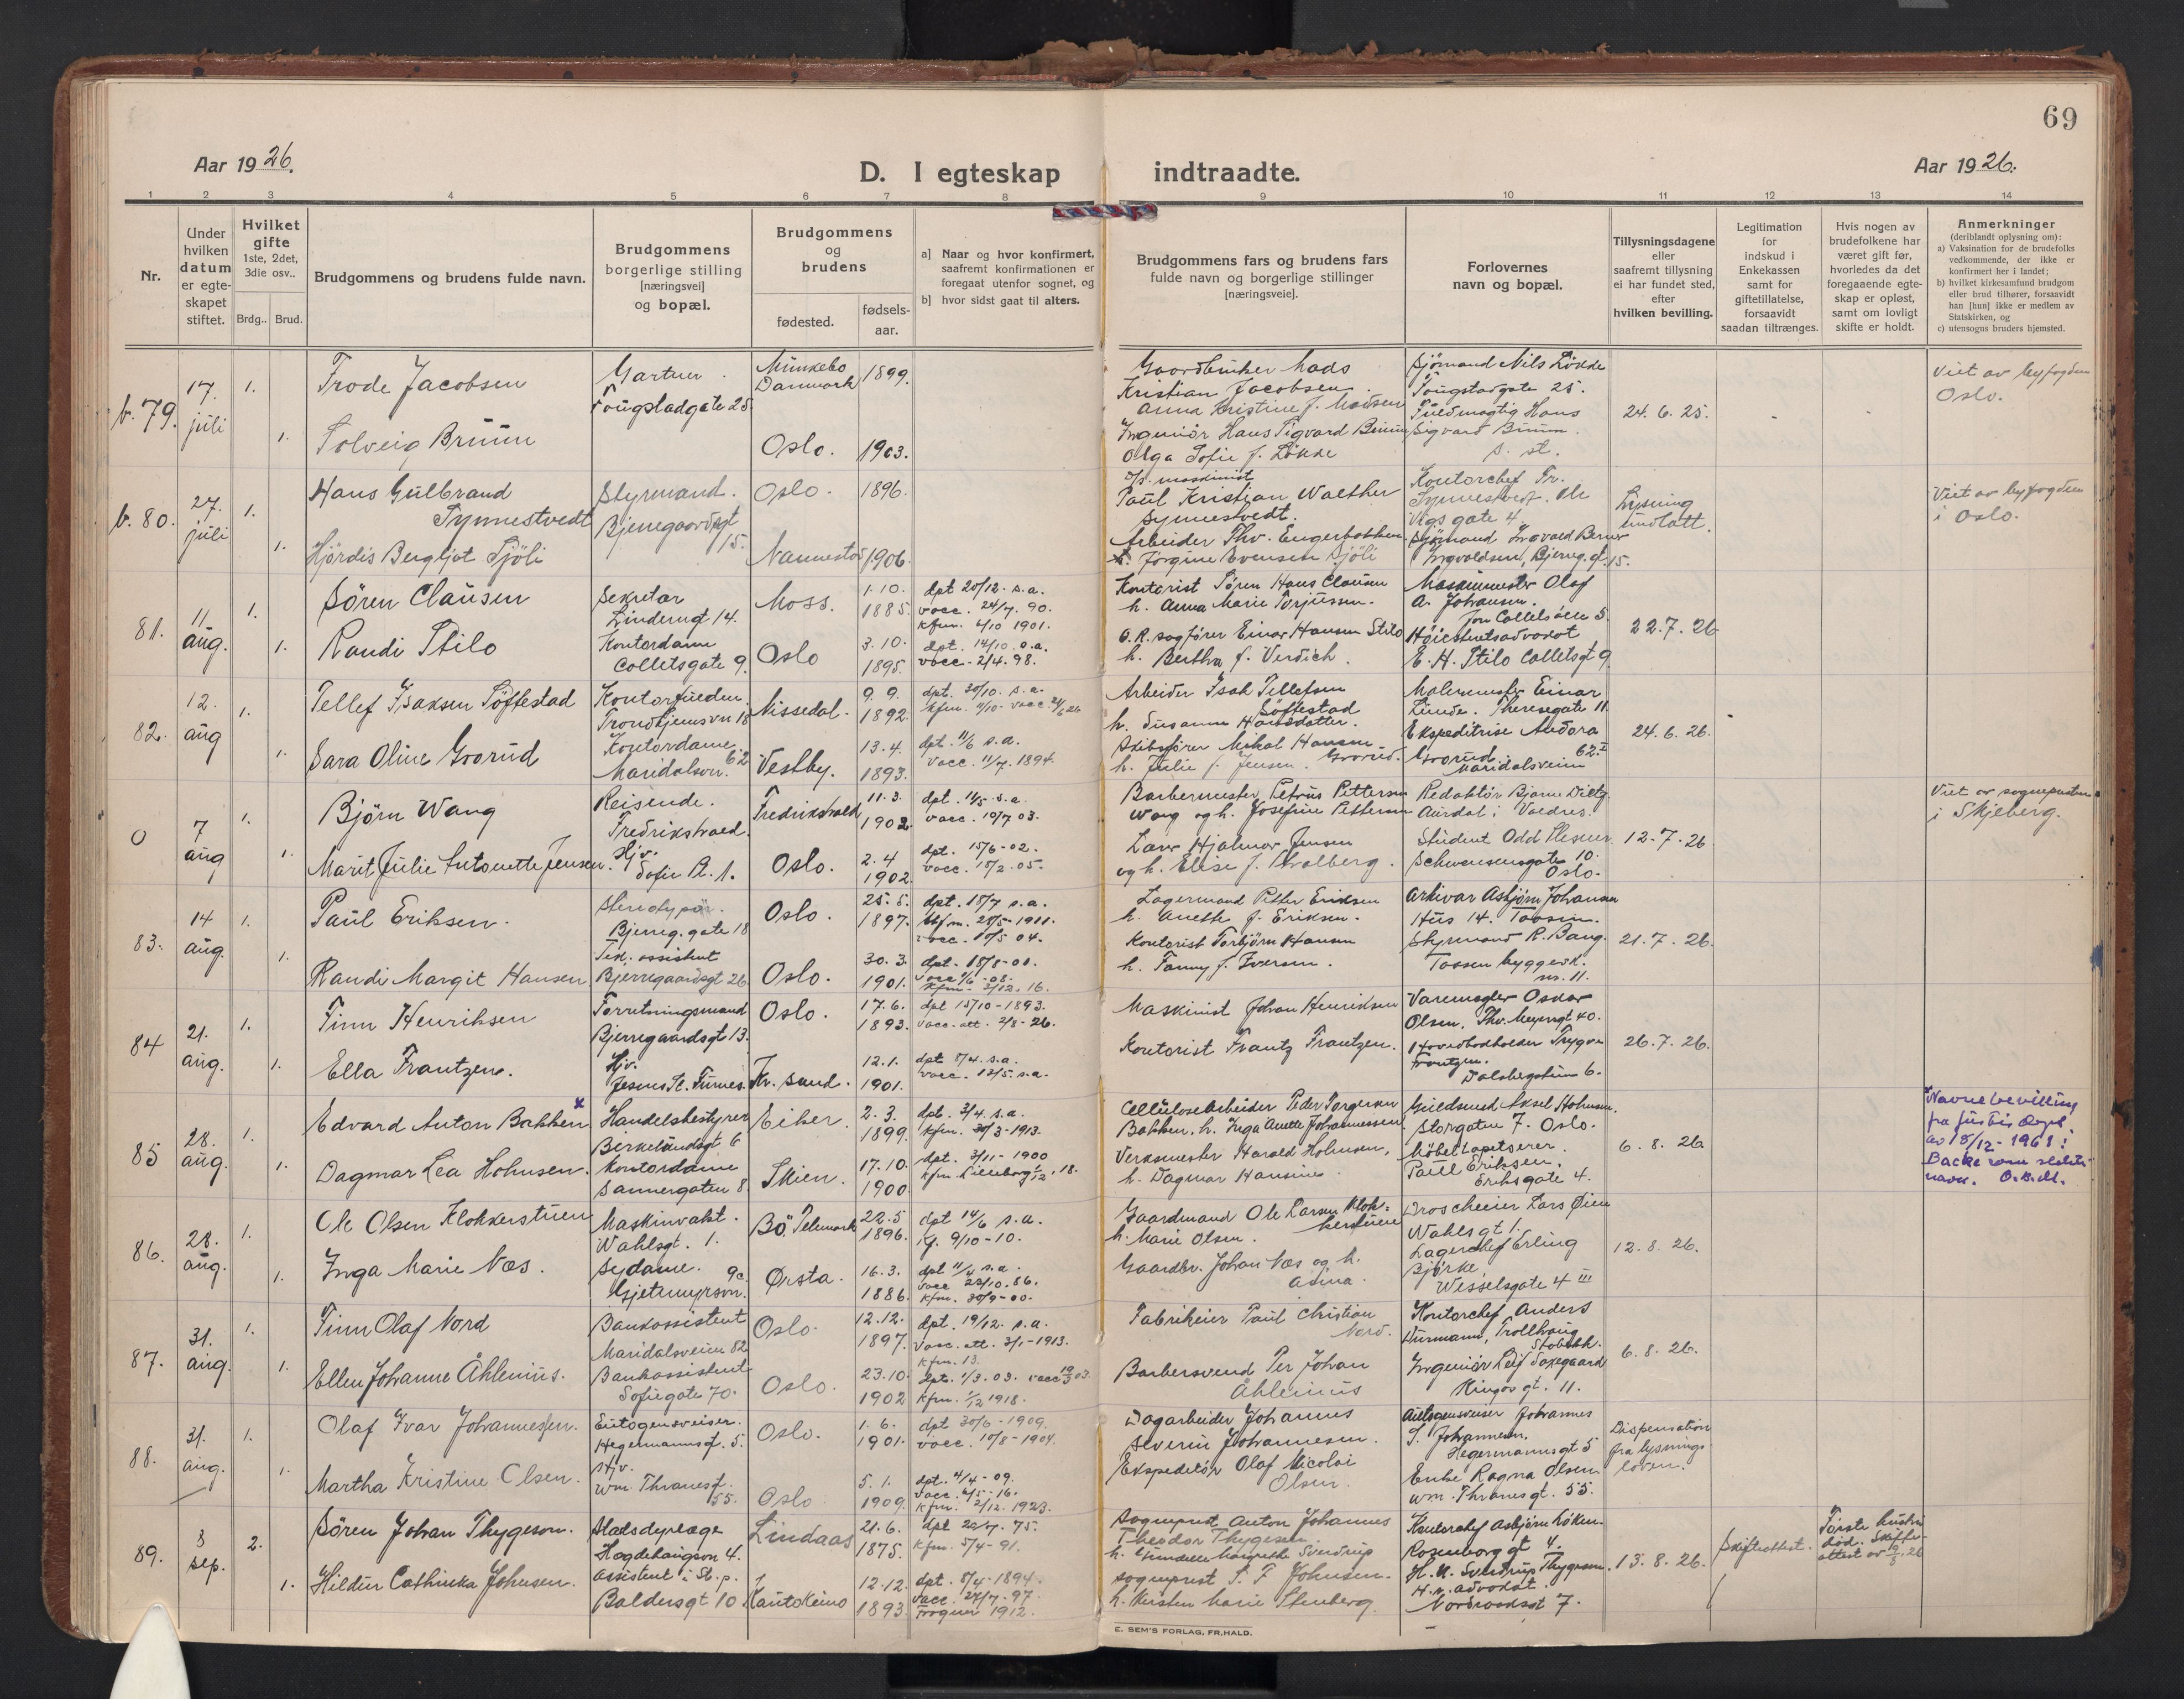 69
Aar 1926.
D. I egteskap indtraadte.
Aar 1926.
1 2 3 4 5 6 7 8 9 10 11 12 13 14
Nr.
Under
hvilken
datum
er egte-
skapet
stiftet.
Hvilket
gifte
1ste, 2det,
3die osv..
Brdg.. Brud.
Brudgommens og brudens fulde navn.
Brudgommens
borgerlige stilling
[næringsvei]
og bopæl.
Brudgommens
og
brudens
fødested.
fødsels-
aar.
a] Naar og hvor konfirmert,
saafremt konfirmationen er
foregaat utenfor sognet, og
b] hvor sidst gaat til alters.
Brudgommens fars og brudens fars
fulde navn og borgerlige stillinger
[næringsveie].
Forlovernes
navn og bopæl.
Tillysningsdagene
eller
saafremt tillysning
ei har fundet sted,
efter
hvilken bevilling.
Legitimation
for
indskud i
Enkekassen
samt for
giftetillatelse,
forsaavidt
saadan tiltrænges.
Hvis nogen av
brudefolkene har
været gift før,
hvorledes da det
foregaaende egte-
skap er opløst,
samt om lovligt
skifte er holdt.
Anmerkninger
(deriblandt oplysning om):
a) Vaksination for de brudefolks
vedkommende, der ikke er
konfirmert her i landet;
b) hvilket kirkesamfund brudgom
eller brud tilhører, forsaavidt
han [hun] ikke er medlem av
Statskirken, og
c) utensogns bruders hjemsted.
b. 79.
17.
juli
1.
1.
Frode Jacobsen
Solveig Bruun
Gartner.
Fougstadgate 25
Munkebo
Danmark
1899.
Oslo. 1903.
Gaardbruker Mads
Kristian Jacobsen.
Anna Kristine f. Madsen
Ingeniör Hans Sigvard Bruun
Olga Sofie f. Lökke
Sjømand Nils Lökke
Fougstadgate 25.
Fuldmægtig Hans
Sigvard Bruun.
s. st.
24. 6. 25.
Viet av byfogden
Oslo.
b. 80.
27.
juli
1.
1.
Hans Gulbrand
Synnestvedt
Hjördis Bergljot Sjöli
Styrmand.
Bjerregaardsgt
15.
Oslo. 1896.
Nannestad 1906.
maskinist
Paul Kristian Walther
Synnestvedt.
Arbeider Thv. Engerbakken
Jörgine Evensen Sjöli
Kontorchef Fr.
Synnestvedt. Ole
Vigs gate 4
Sjømand Ingvald Berner
Ingvaldsen, Bjerreg. gt. 15.
Lysning
undlatt.
Viet av byfogden
i Oslo.
81.
11
aug.
1.
1.
Sören Clausen
Randi Stilo
Sekretær
Linderngt 14.
Kontordame
Colletsgate 9.
Moss.
1. 10.
1885.
Oslo
3. 10.
1895.
dpt 20/12. s.a.
vacc. 24/7. 90.
kfm. 6/10 1901.
dpt. 14/10. s.a.
vacc. 2/4. 98.
Kontorist Sören Hans Clausen
h. Anna Marie Torjussen.
O.R. sagfører Einar Hansen Stilo
h. Bertha f. Verdich.
Maskinmester Olaf
A. Johansen.
Jon Colletsallé 5.
Høiesteretsadvokat
E. H. Stilo Colletsgt 9
22. 7. 26
82.
12.
aug
1.
1.
Tellef Isaksen Söftestad
Sara Oline Gorud
Kontorfuldm.
Trondhjemsvn 18
Kontordame
Maridalsvn. 62
Nissedal.
9. 9.
1892.
Vestby.
13. 4.
1893.
dpt. 30/10. s.a.
dpt. 11/6 s.a.
vacc. 11/7. 1894.
Arbeider Isak Tellefsen
Söftestad
h. Susanne Hansdatter.
Skibsfører Mikal Hansen
h. Julie f. Jensen. Gorud.
Malermester Einar
Lunde. Theresegate 11
Ekspeditrise Andora
Gorud. 62 I
Maridalsveien
24. 6. 26.
0
7
aug
1.
1.
Björn Wang
Marit Julie Antonette Jensen.
Reisende.
Fredrikstad.
Hjv.
Sofie Pl. 1.
Fredrikstad
11. 3.
1902.
Oslo.
2. 4
1902
dpt. 11/5. s.a.
vacc. 10/7 03.
dpt. 15/6-02.
vacc. 18/2. 05.
Barbermester Petrus Pettersen
Wang og h. Josefine Pettersen
Lars Hjalmar Jensen
og h. Elise f. Walberg.
Redaktör Bjarne Dietz
Aurdal i Valdres.
Student Odd Plesner.
Schwensensgate 10.
Oslo.
12. 7. 26
Viet av sognepresten
i Skjeberg.
83.
14
aug.
1.
1.
Paul Eriksen.
Randi Margit Hansen
Stenotypör.
Bjerreg. gate 18
Tek. assistent
Bjerregaardsgt 26
Oslo.
25. 5.
1897.
Oslo.
30. 3.
1901.
dpt. 18/7 s.a.
kfm. 28/5-1911.
vacc. 10/5 04.
dpt. 18/8-01.
kfm. 3/12. 16.
Lagermand Petter Eriksen
h. Anette f. Eriksen.
Kontorist Torbjörn Hansen
h. Fanny f. Iversen.
Arkivar Asbjörn Johansen
Hus 14. Taasen.
Styrmand R. Bang.
Taasen byggesk.
nr. 11.
21. 7. 26.
84
21.
aug.
1.
1.
Finn Henriksen
Ella Frantzen.
Forretningsmand
Bjerregaardsgt 13.
Hjv.
Oslo.
17. 6.
1893.
Kr. sand.
12. 1.
1901.
dpt 15/10-1893.
vacc. att. 2/8-26.
dpt 8/4. s.a.
vacc. 13/5. s.a.
Maskinist Johan Henriksen
Kontorist Frantz Frantzen.
Varemægler Oskar
Olsen, Thv. Meyersgt 40.
Hovedbokholder Trygve
Frantzen.
Dalsbergstien 6.
26. 7. 26.
85
28.
aug.
1.
1.
Edvard Anton Bakken x
Dagmar Lea Holmsen.
Handelsbestyrer
Birkelundsgt 6
Kontordame
Sannergaten 8.
Eiker.
2. 3.
1899.
Skien.
17. 10.
1900
dpt. 3/4. s.a.
kfm. 30/3-1913.
dpt. 3/11-1900
kfm. Lilleborg 1/12. 18.
Cellulosearbeider Peder Torgersen
Bakken. h. Inga Anette Johannessen
Verksmester Harald Holmsen,
h. Dagmar Hansine.
Guldsmed Aksel Holmsen.
Storgaten 7. Oslo.
Möbeltapetserer.
Paul Eriksen.
Eriksgate 4.
6. 8. 26
Navnebevilling
fra Justis dept.
av 18/12-1961:
Backe som slekts-
navn. O.B.M.
86.
28.
aug.
1.
1.
Ole Olsen Klokkerstuen
Inga Marie Næs.
Maskinvakt.
Wahlsgt. 1.
Sydame. 9c
Gjetemyrsvn.
Bö. Telemark
22. 5
1896.
Ørsta.
16. 3.
1886.
dpt 14/6 s.a.
kf. 9/10-10.
dpt 11/4 s.a.
vacc 23/10. 86.
kfm. 30/9-00.
Gaardmand Ole Larsen Klok-
kerstuen
h. Marie Olsen.
Gaardbr. Johan Næs og h.
Asina.
Droscheeier Lars Øien
Wahlsgt 1.
Lagerchef Erling
Björke.
Wesselsgate 4 III
12. 8. 26.
87.
31.
aug.
1.
1.
Finn Olaf Nord
Ellen Johanne Åhlenius.
Bankassistent
Maridalsveien 82
Bankassistent
Sofiegate 70.
Oslo.
12. 12.
1897.
Oslo.
23. 10.
1902
dpt. 19/12. s.a.
vacc. att. 3/1-1913.
kfm. 13.
dpt. 1/3. 03. vacc 19/3 03.
kfm. 1/12 1918.
Fabrikeier Paul Christian
Nord.
Barbersvend Per Johan
Åhlenius
Kontorchef Anders
Durmann, Trollhaug
Stabekk.
Ingeniör Leif Saxegaard
Kingosgt. 11.
6. 8. 26.
88.
31.
aug.
1.
1.
Olaf Ivar Johannessen.
Martha Kristine Olsen.
Autogensveiser.
Hegermannsgt. 5.
Hjv.
Wm. Thranesgt.
55.
Oslo.
1. 6.
1901.
Oslo
5. 1.
1909.
dpt 30/6-1909.
vacc. 10/8-1904.
dpt. 4/4-09.
vacc. 6/5-16.
kfm. 2/12. 1923.
Dagarbeider Johannes
Severin Johannesen.
Ekspeditör Olaf Nicolai
Olsen.
Autogensveiser Johannes
S. Johannesen.
Hegermannsgt 5
Enke Ragna Olsen
Wm. Thranesgt. 55.
Dispensation
fra lysnings-
loven.
89.
3
sep.
2.
1.
Sören Johan Thygeson.
Hildur Cathinka Johnsen.
Stadsdyrlæge
Hægdehaugsvn 4.
Assistent i St. p.
Baldersgt 10
Lindaas
21. 6.
1875.
Kautokeino
12. 12.
1893
dpt 22/7. 75.
kfm. 5/4-91.
dpt. 8/4-1894.
vacc. 27/7-97.
Frogner 1912.
Sogneprest Anton Johannes
Theodor Thygesen.
h. Gundelle Margrethe Sverdrup
Sogneprest S. F. Johnsen.
h. Kirsten Marie Stenberg.
Kontorchef Asbjörn Löken.
Rosenborg gt 4.
H. U. Sverdrup Thygeson.
H.r. advokat.
Nordraaksgt 7.
13. 8. 26.
Skifteattest.
Første hustru
død. Skifte-
attest av 2/8. 26
E. SEM'S FORLAG, FR.HALD.